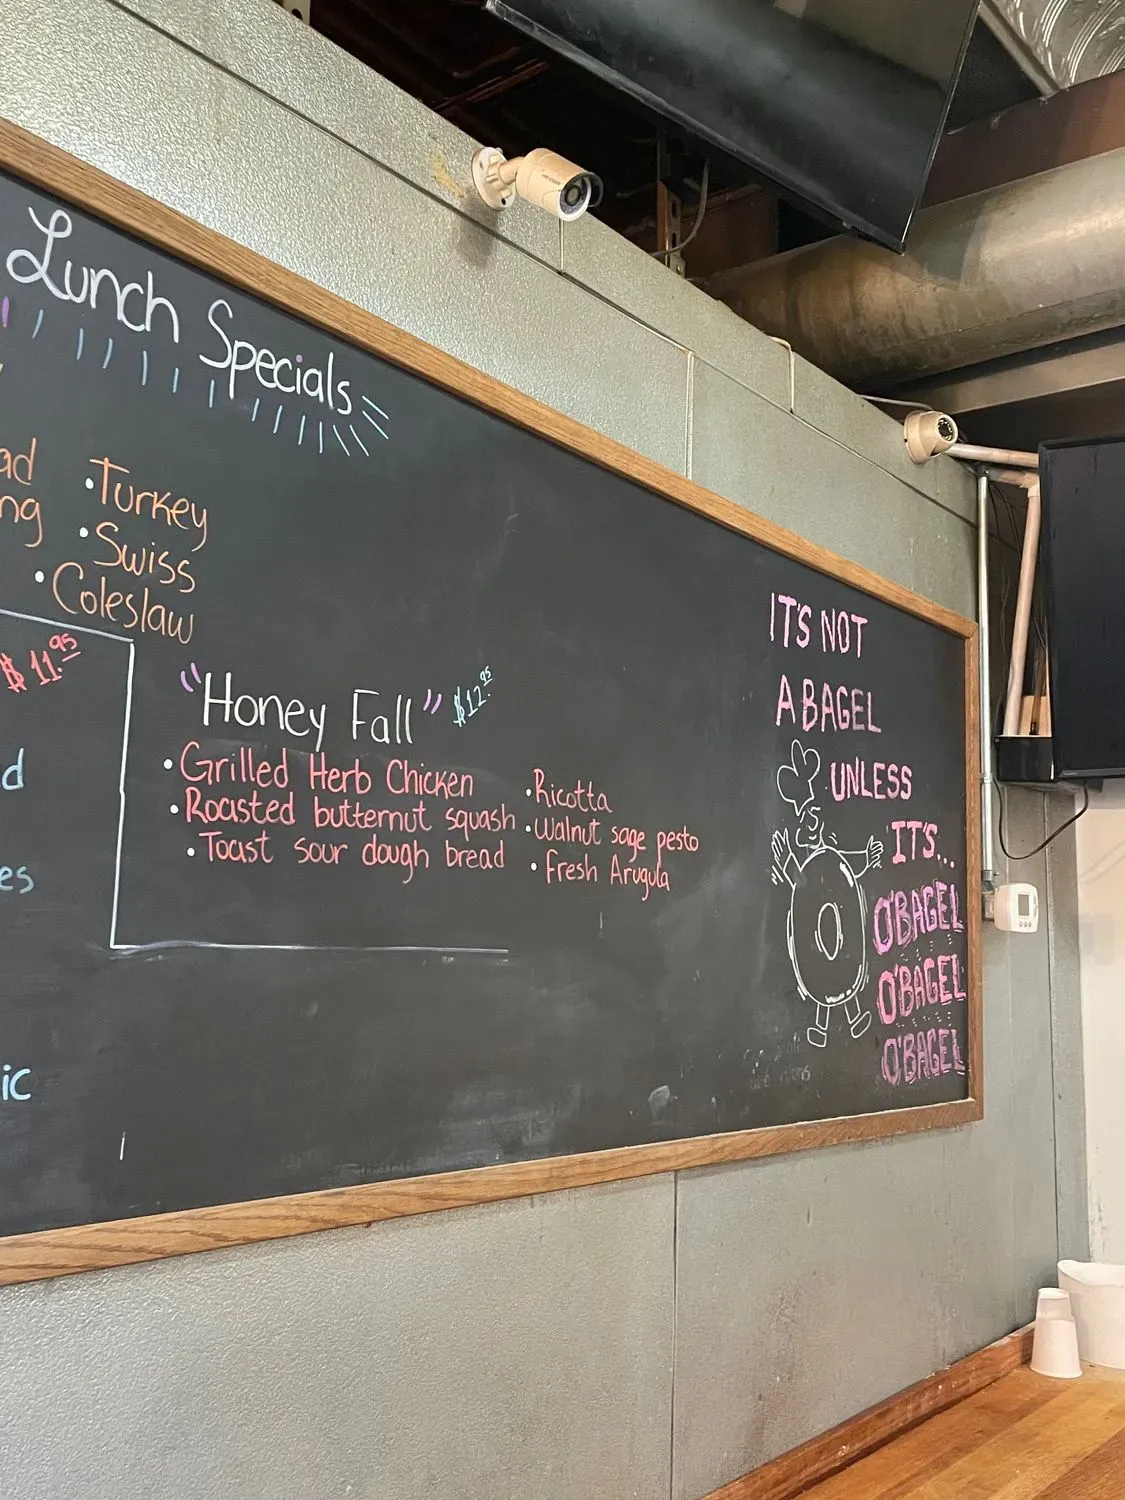 Lunch Specials
• Turkey
• Swiss
• Coleslaw
$ 11.95
"Honey Fall" $12.95
• Grilled Herb Chicken
• Roasted butternut squash
• Toast sour dough bread
• Ricotta
• Walnut sage pesto
• Fresh Arugula
IT'S NOT
A BAGEL
UNLESS
IT'S...
O'BAGEL
O'BAGEL
O'BAGEL